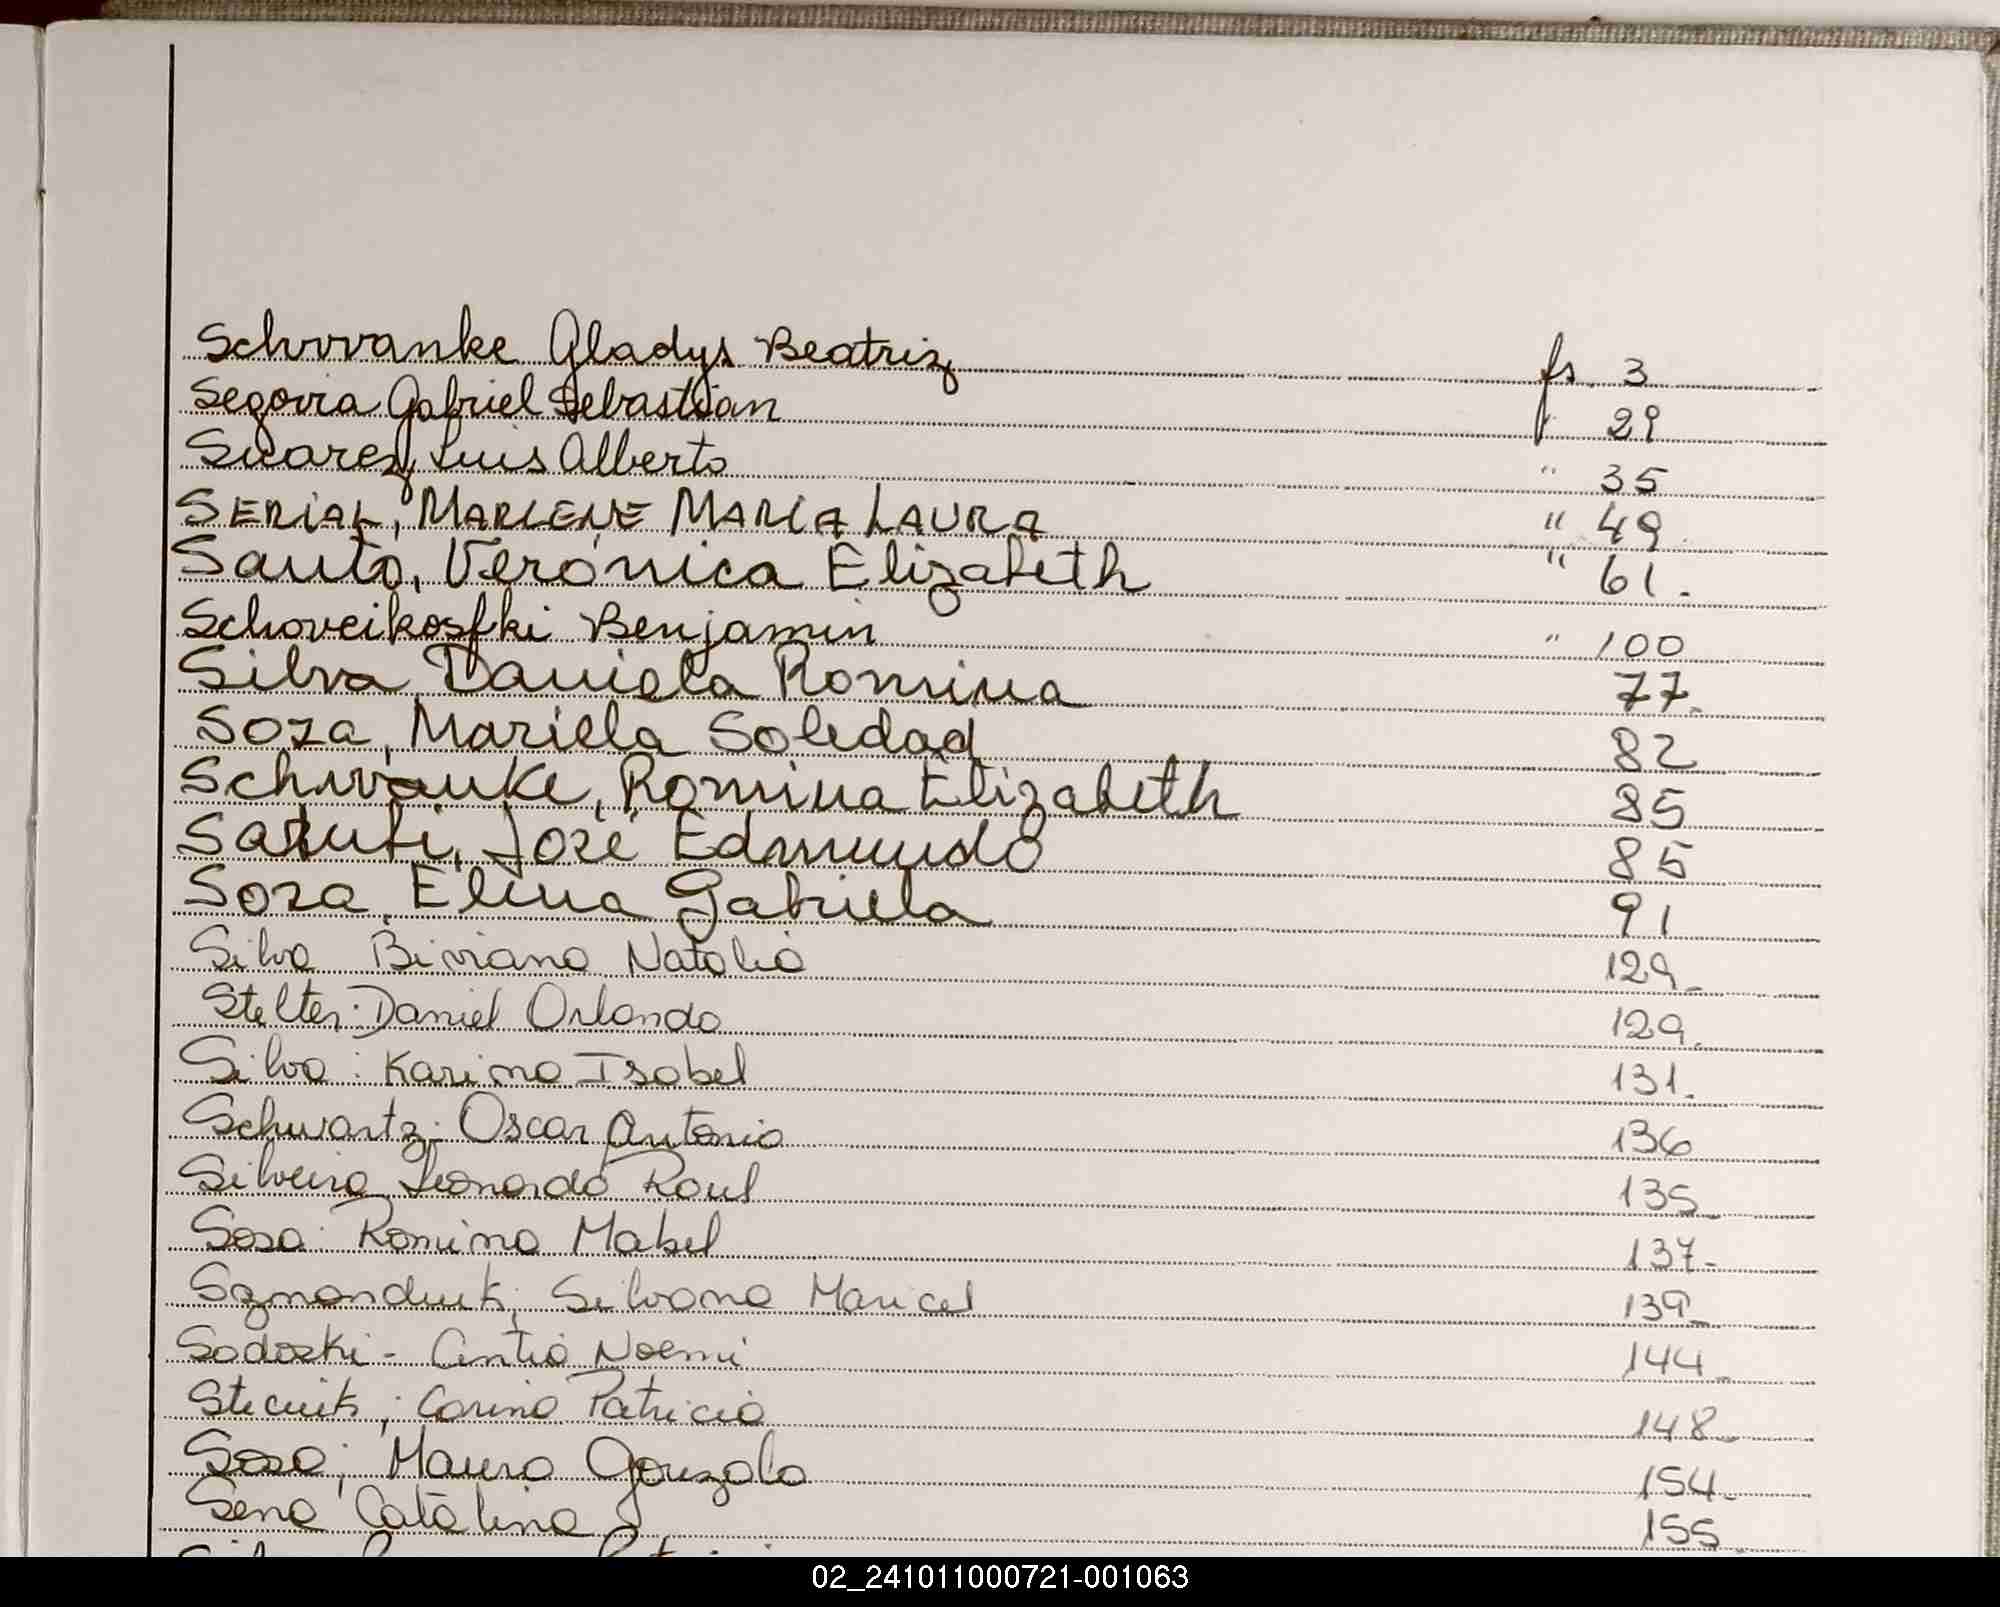 Schvvanke Gladys Beatriz fs. 3
Segovia Gabriel Sebastian f. 29
Suarez, Luis Alberto " 35
SERIAL, MARLENE MARIA LAURA " 49
Sauto, Verónica Elizabeth " 61.
Schoveikosfki Benjamin " 100
Silva, Daniela Romina 77.
Soza, Mariela Soledad 82
Schwanke, Romina Elizabeth 85
José Edmundo 85
Soza, Elina Gabriela 91
Silva Biviana Natalia 129-
Stelter: Daniel Orlando 129.
Silva: Karina Isabel 131.
Schwartz: Oscar Antonio 136
Silveira, Leonardo Raul 135-
Sosa: Romina Mabel 137-
Szmanduk; Silvana Maricel 139-
Sadoski - Cintia Noemi 144-
Stecuik; Carina Patricia 148-
Sosa; Mauro Gonzalo 154-
Sena Catalina 155-
02_241011000721-001063